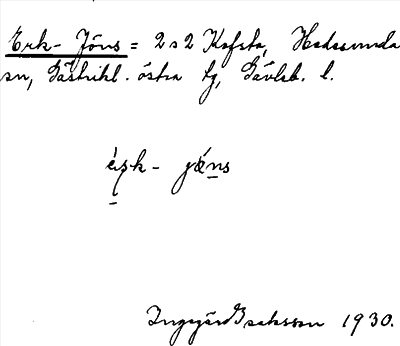 Erk-Jöns = 2 a 2 Kafsta, Hedesunda
sn, Gästrikl. östra tg, Gävleb. l.
ėşk- jǿns
Ingegärd Isaksson 1930.